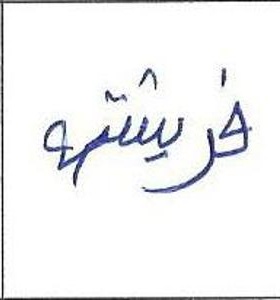 فریشته